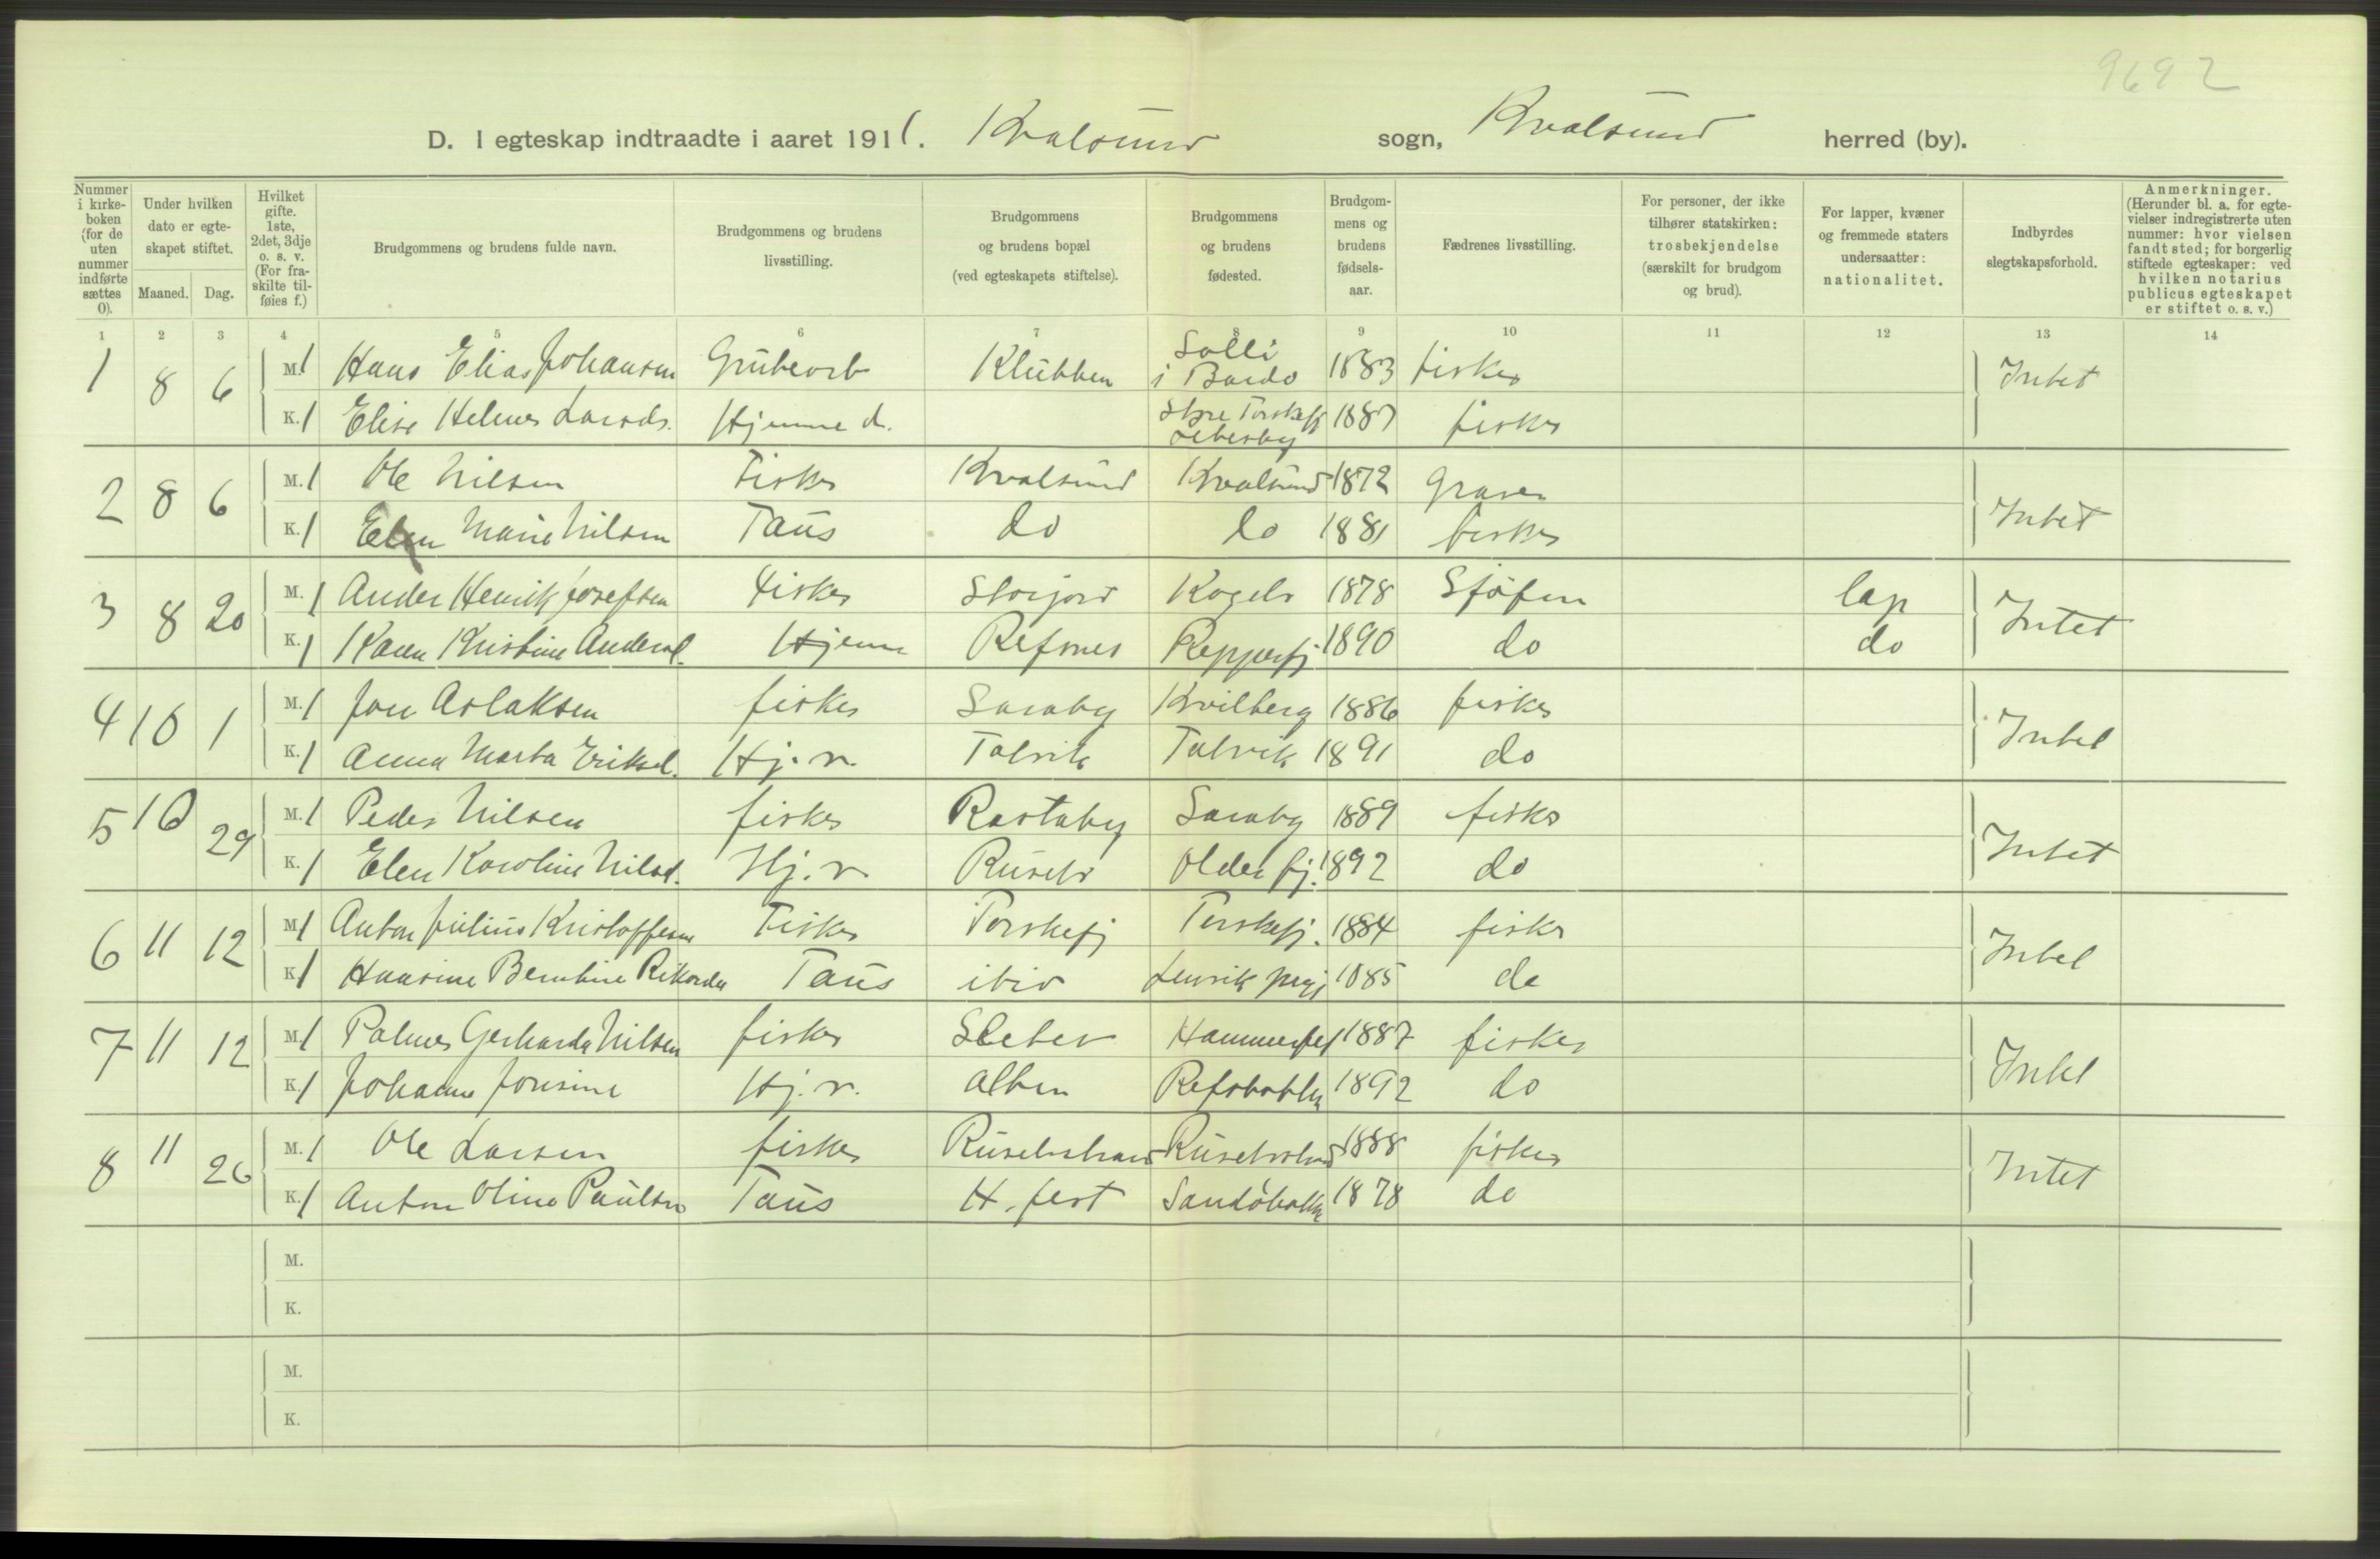 9692
D. I egteskap indtraadte i aaret 1911. Kvalsund sogn, Kvalsund herred (by).
Nummer i kirkeboken (for de uten nummer indførte sættes 0).
Under hvilken dato er egteskapet stiftet.
Maaned. Dag.
Hvilket gifte. 1ste, 2det, 3dje o. s. v. (For fraskilte tilføies f.)
Brudgommens og brudens fulde navn.
Brudgommens og brudens livsstilling.
Brudgommens og brudens bopæl (ved egteskapets stiftelse).
Brudgommens og brudens fødested.
Brudgommens og brudens fødselsaar.
Fædrenes livsstilling.
For personer, der ikke tilhører statskirken: trosbekjendelse (særskilt for brudgom og brud).
For lapper, kvæner og fremmede staters undersaatter: nationalitet.
Indbyrdes slegtskapsforhold.
Anmerkninger. (Herunder bl. a. for egtevielser indregistrerte uten nummer: hvor vielsen fandt sted; for borgerlig stiftede egteskaper: ved hvilken notarius publicus egteskapet er stiftet o. s. v.)
1 2 3 4 5 6 7 8 9 10 11 12 13 14
1 8 6 M. 1 Hans Elias Johansen Grubearb Klubben Solli i Bardo 1883 fisker Intet
K. 1 Elise Helmer Larsds. Hjemme d. Store Torskefj Lebesby 1887 fisker
2 8 6 M. 1 Ole Nilsen Fisker Kvalsund Kvalsund 1872 Graver Intet
K. 1 Elen Marie Nilsen Taus do do 1881 fisker
3 8 20 M. 1 Ander Henrik Josefsen Fisker Storjord 1878 Sjøfin lap Intet
K. 1 Karen Kristine Andersd. Hjem Refsnes Repparfj 1890 do do
4 10 1 M. 1 Jon Aslaksen fisker Saraby Kvilberg 1886 fisker Intet
K. 1 Anna Marta Eriksd. Hj. v. Talvik Talvik 1891 do
5 10 29 M. 1 Peder Nilsen fisker Rastaby Saraby 1889 fisker Intet
K. 1 Elen Karoline Nilsd. Hj. v. Older fj. 1892 do
6 11 12 M. 1 Anton Julius Kristoffersen Fisker Torskefj Torskefj. 1884 fisker Intet
K. 1 Haarine Berntine Rikarda Taus ibid 1885 do
7 11 12 M. 1 Palmer Gerharda Nilsen fisker Hammerfest 1887 fisker Intet
K. 1 Johanne Jonsine Hj. v. Alten Refsbotn 1892 do
8 11 26 M. 1 Ole Larsen fisker 1888 fisker Intet
K. 1 Anton Oline Paulsen Taus H. fest Sandøbotn 1878 do
M.
K.
M.
K.